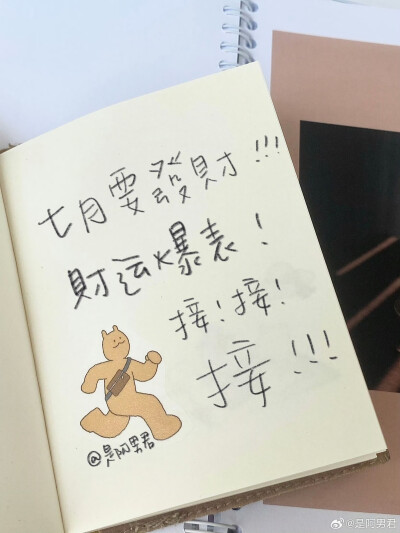 七月要發財!!!
財运爆表!
接!接!
接!!!
@是阿男君
@是阿男君